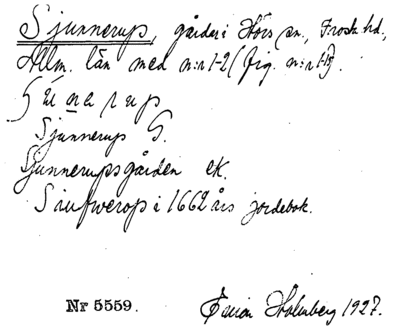 Sjunnerup, gårdar i Hörs sn., Frosta hd.,
Mlm. län med n:r 1-2 (fig. n:r 1-18).
Sunarup
Sjunnerup G.
Sjunnerupsgården ek.
i 1662 års jordebok.
Nr 5559. Holmberg 1927.